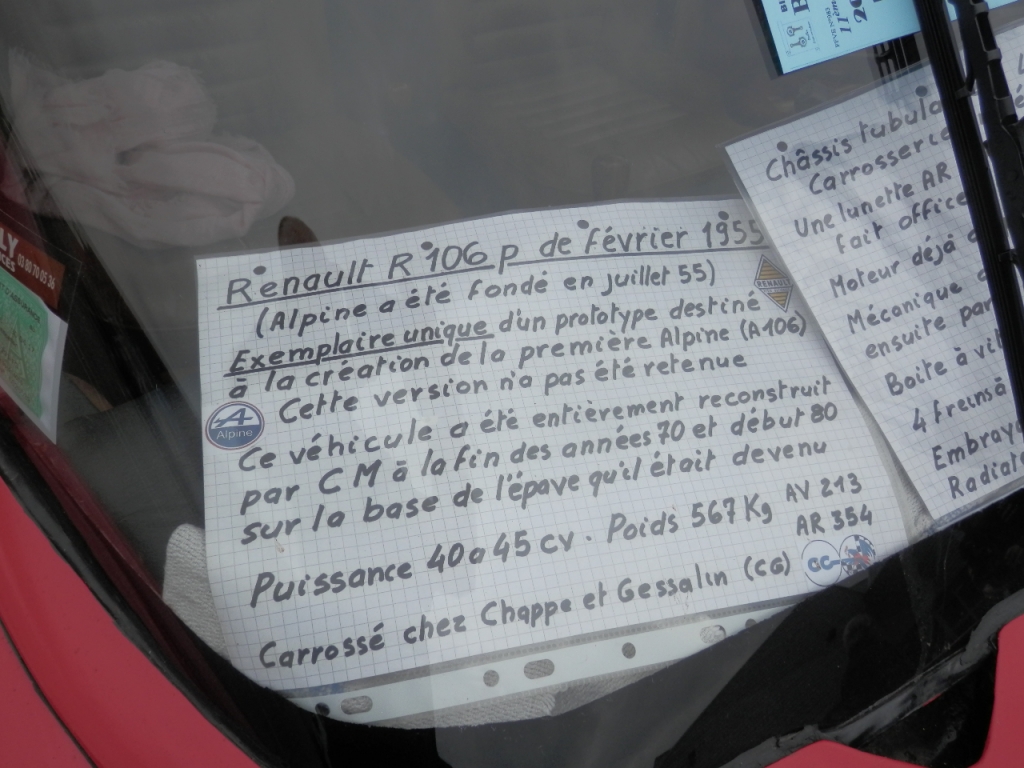 Renault R 106 P de février 1955
(Alpine a été fondé en juillet 55)
RENAULT
Exemplaire unique d'un prototype destiné
à la création de la première Alpine (A106)
Cette version n'a pas été retenue
A
Alpine
Ce véhicule a été entièrement reconstruit
par CM à la fin des années 70 et début 80
sur la base de l'épave qu'il était devenu
Puissance 40 a 45 cv. Poids 567 Kg AV 213
AR 354
Carrossé chez Chappe et Gessalin (CG)
CG
Châssis tubula
Carrosserie
Une lunette AR
fait office
Moteur déjà
Mécanique
ensuite par
Boite à vit
4 freins à
Embraya
Radiat
LY
CES
03 80 70 05 36